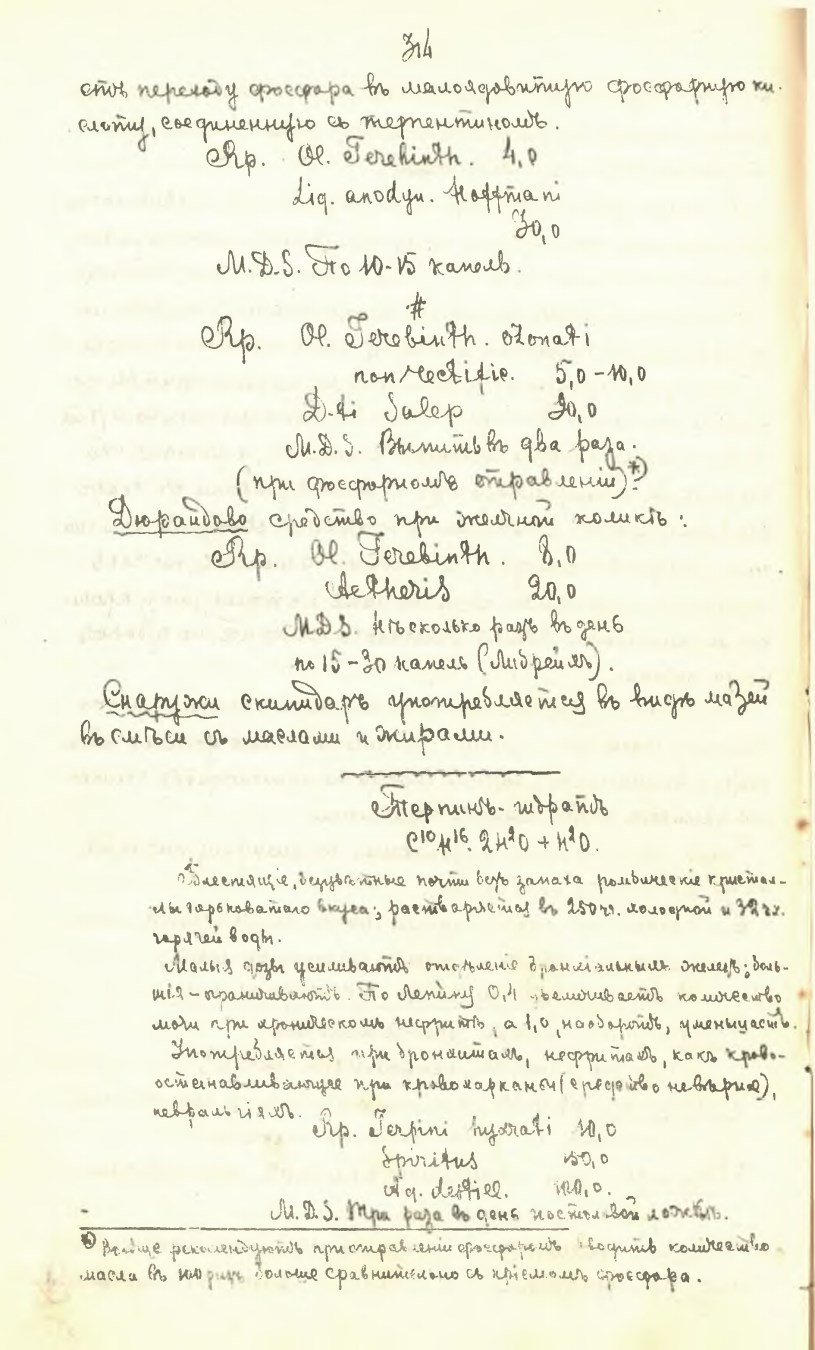 314
ств переходу фосфора въ малоядовитую фосфорную ки-
слоту, соединенную съ терпентиномъ.
Rp. Ol. Terebinth. 4,0
Liq. anodyn. Hoffmani
30,0
M.D.S. По 10-15 капель.
#
Rp. Ol. Terebinth. ozonati
non rectific. 5,0-10,0
D-ti Salep 90,0
M.D.S. Выпить въ два раза.
(при фосфорномъ отравленіи)*)
Дюрандово средство при желчной коликѣ:
Rp. Ol. Terebinth. 8,0
Aetheris 20,0
MDS. Нѣсколько разъ въ день
по 15-30 капель (Либрейхъ).
Снаружи скипидаръ употребляется въ видѣ мазей
въ смѣси съ маслами и жирами.
Терпинъ-гидратъ
C10H16. 2H2O + H2O.
Блестящіе, безцвѣтные почти безъ запаха ромбическіе кристал-
лы горьковатаго вкуса; растворяется въ 250 ч. холодной и 32 ч.
горячей воды.
Малыя дозы усиливаютъ отдѣленіе бронхіальныхъ железъ; боль-
шія - ограничиваютъ. По Лепину 0,4 увеличиваетъ количество
мочи при хроническомъ нефритѣ, а 1,0, наоборотъ, уменьшаетъ.
Употребляется при бронхитахъ, нефритахъ, какъ крово-
останавливающее при кровохарканьи (средство невѣрное),
невральгіяхъ.
Rp. Terpini hydrati 10,0
Spiritus 150,0
Aq. destill. 100,0.
M.D.S. Три раза въ день по столовой ложкѣ.
*) Вообще рекомендуютъ при отравленіи фосфоромъ вводить количество
масла въ разъ больше сравнительно съ пріемомъ фосфора.